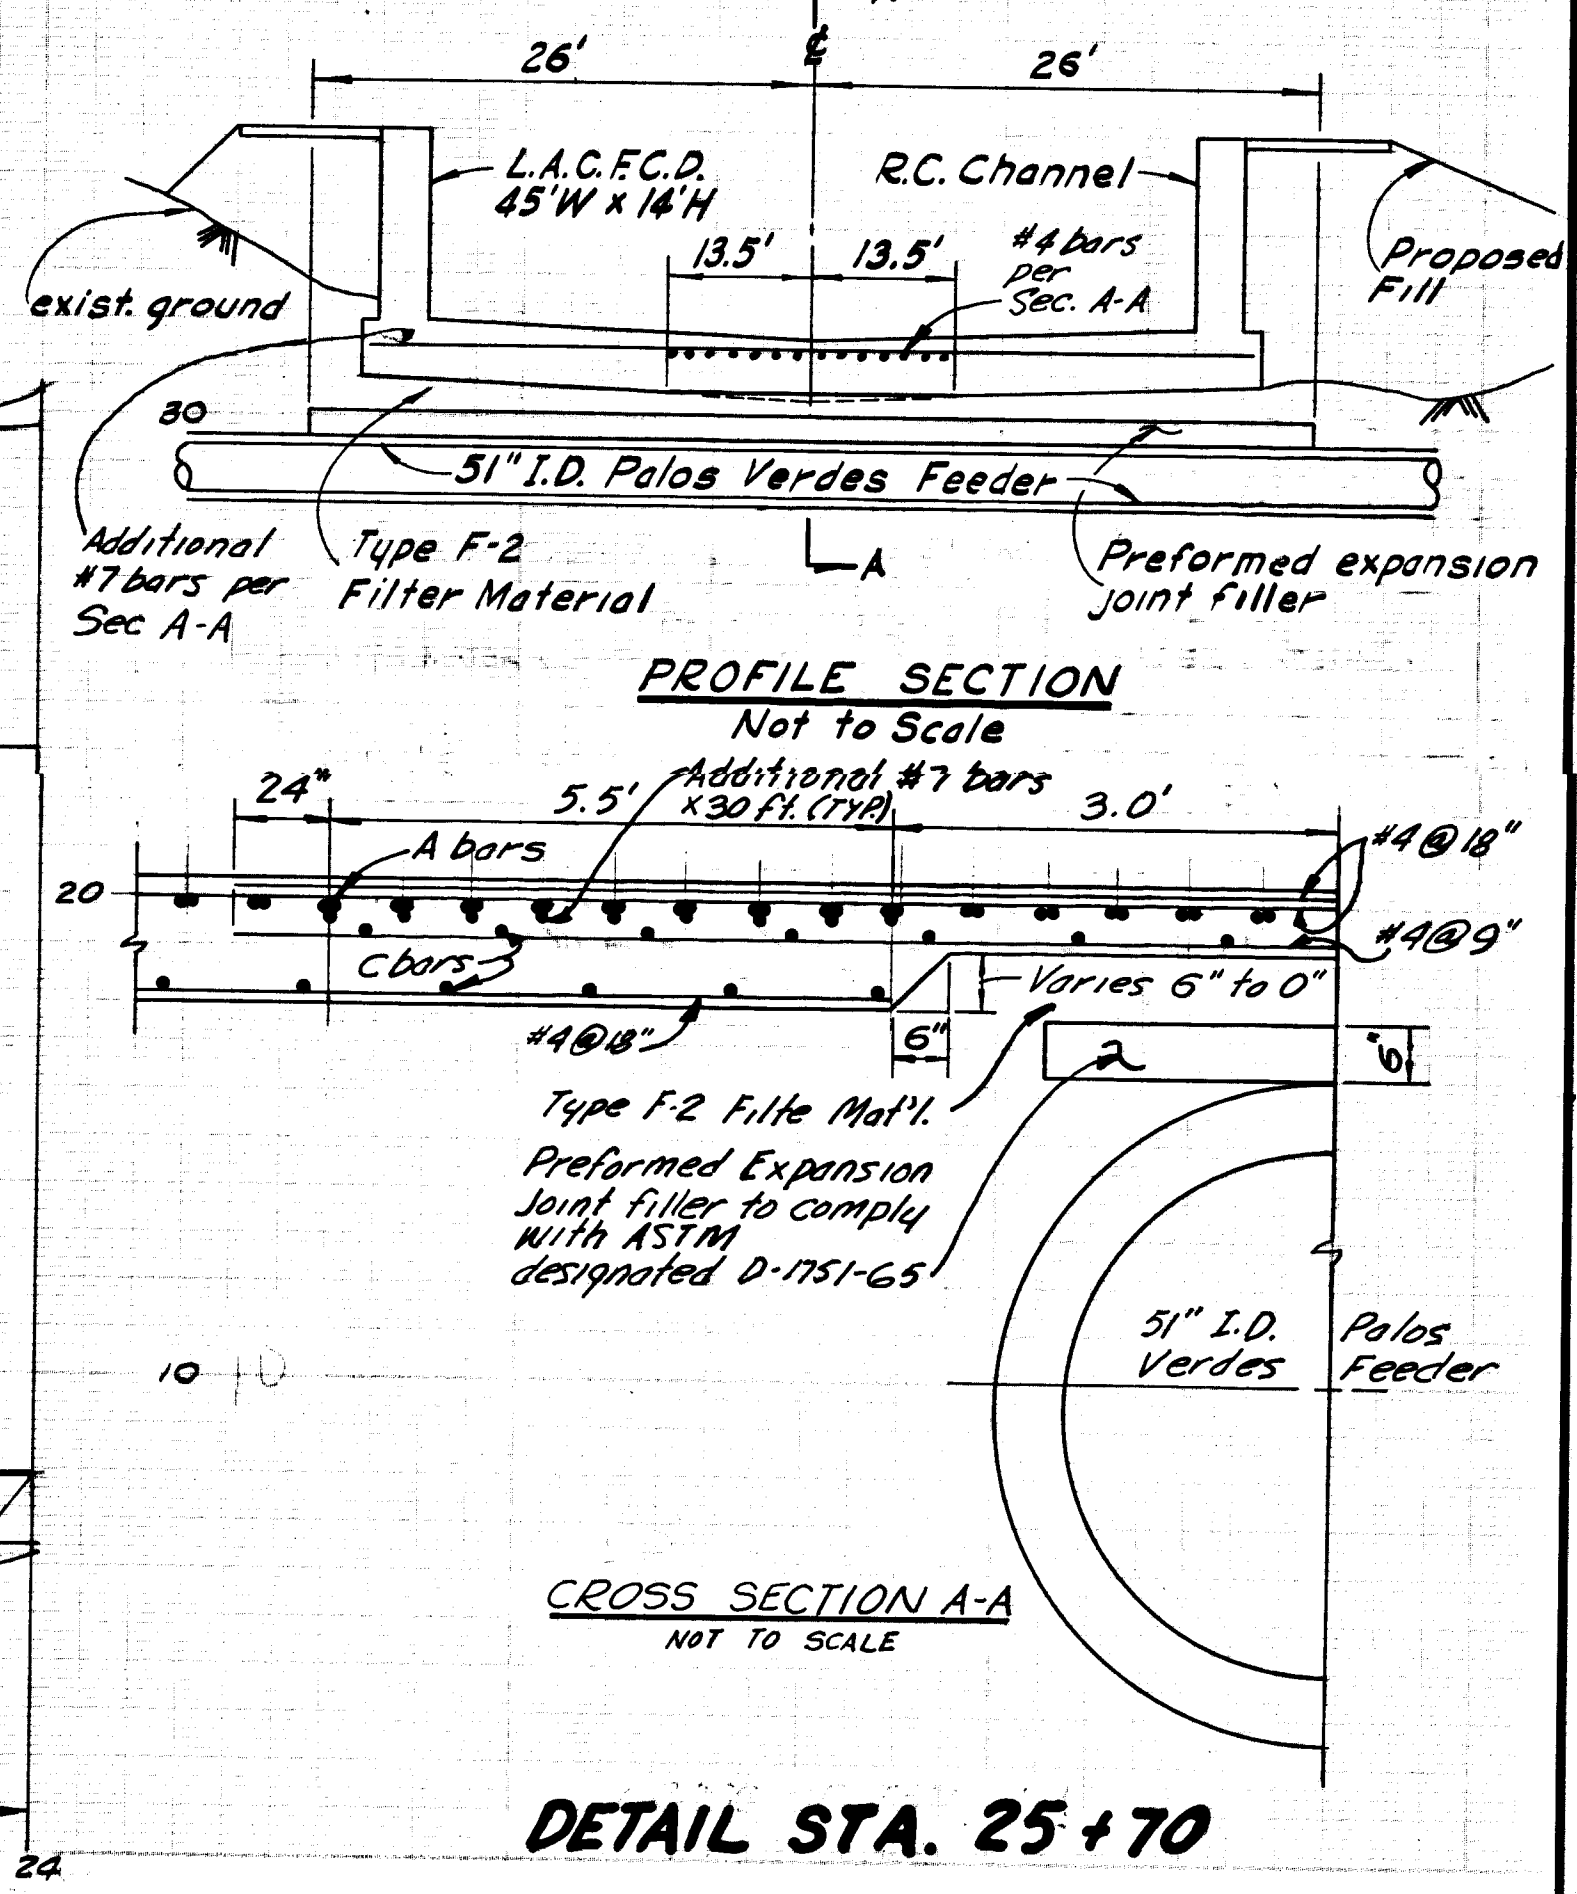 26'
℄
26'
L.A.C.F.C.D.
45'W x 14'H
R.C. Channel
13.5'
13.5'
#4 bars
per
Sec. A-A
Proposed
Fill
exist. ground
30
51" I.D. Palos Verdes Feeder
Additional
#7 bars per
Sec A-A
Type F-2
Filter Material
A
Preformed expansion
joint filler
PROFILE SECTION
Not to Scale
24"
5.5'
Additional #7 bars
x 30 ft. (TYP.)
3.0'
A bars
#4 @ 18"
20
#4 @ 9"
C bars
Varies 6" to 0"
#4 @ 18"
6"
6"
Type F-2 Filte Mat'l.
Preformed Expansion
Joint filler to comply
with ASTM
designated D-1751-65
51" I.D. Palos
Verdes Feeder
10 10
CROSS SECTION A-A
NOT TO SCALE
DETAIL STA. 25+70
24